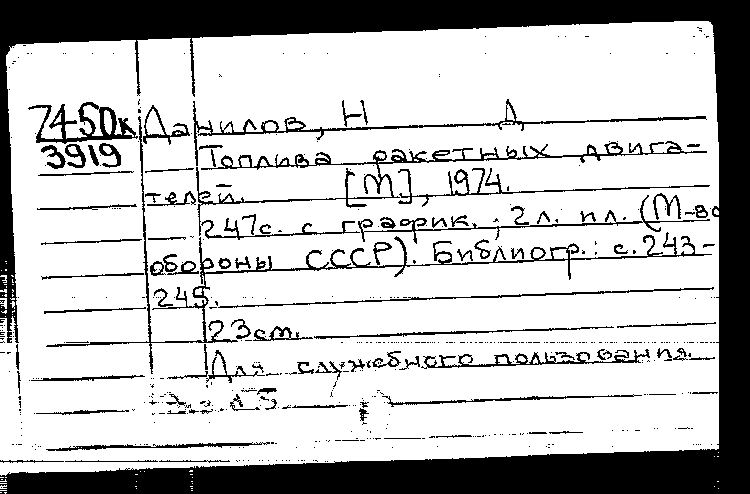 7450к Данилов, Н Д
3919 Топлива ракетных двига-
телей. [М], 1974.
247с. с график.; 2 л. пл. (М-во
обороны СССР). Библиогр.: с. 243-
245.
23см.
Для служебного пользования.